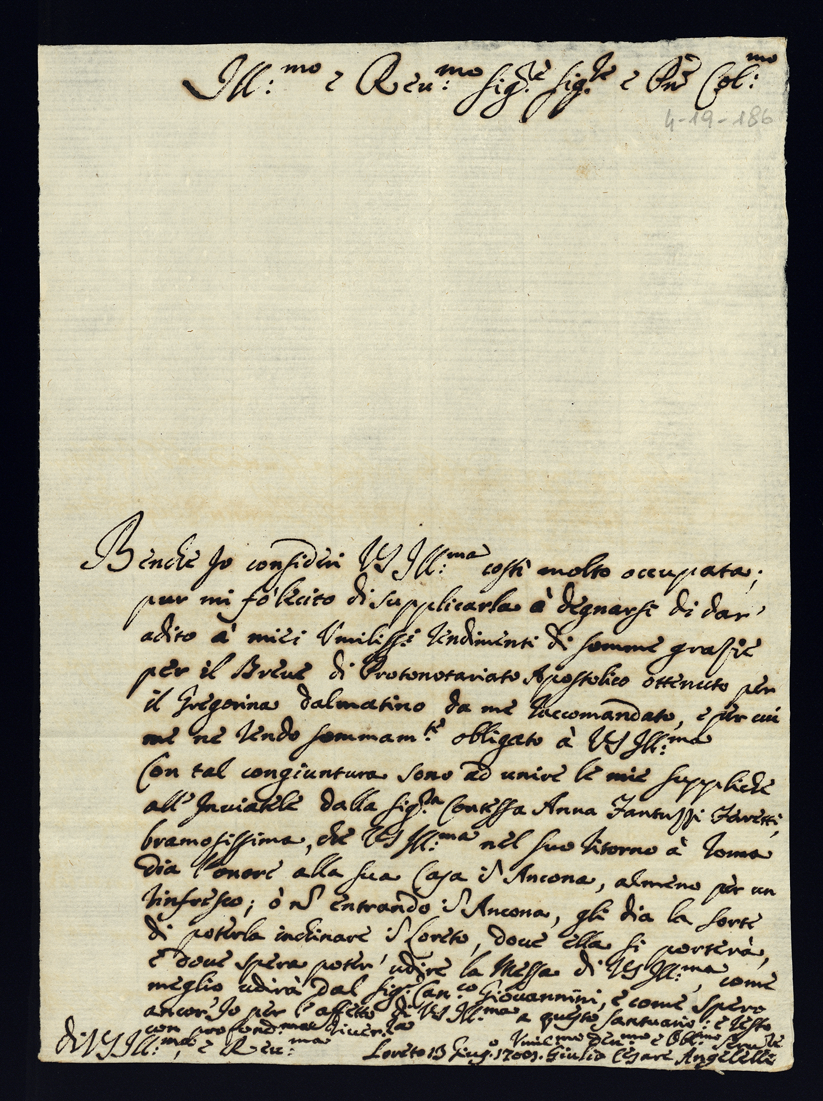 Ill:mo e Reu:mo Sig.re Sig.re e Pne Col:mo
4-19-186
Benche Io consideri VS Ill:ma costì molto occupata;
pur mi fò lecito di supplicarla à degnarsi di dar'
adito à miei Vmiliss:i rendimenti di somme grazie
per il Breue di Protonotariato Apostolico ottenuto per
il Gregorina Dalmatino da me raccomandato, e per cui
me ne rendo sommam.te obligato à VS Ill:ma
Con tal congiuntura sono ad unire le mie suppliche
all'Inviatele dalla Sig.ra Contessa Anna Fantuzzi Ferretti,
bramosissima, che VS Ill:ma nel suo ritorno à Roma
dia l'onore alla sua Casa in Ancona, almeno per un
rinfresco; ò nō entrando in Ancona, gli dia la sorte
di poterla inchinare in Loreto, doue ella si porterà,
e doue spera poter' udire la Messa di VS Ill:ma, come
meglio udirà dal Sig.r Can.co Giouannini, e come spero
ancor'Io per l'affetto di VS Ill:ma a questo Santuario: e resto
con profond:ma riuer.za
di VS Ill:ma, e Reu:ma
Vmil:mo Deu:mo e Obl:mo Seru.re
Loreto 13 Giug.o 1700. Giulio Cesare Angelelli